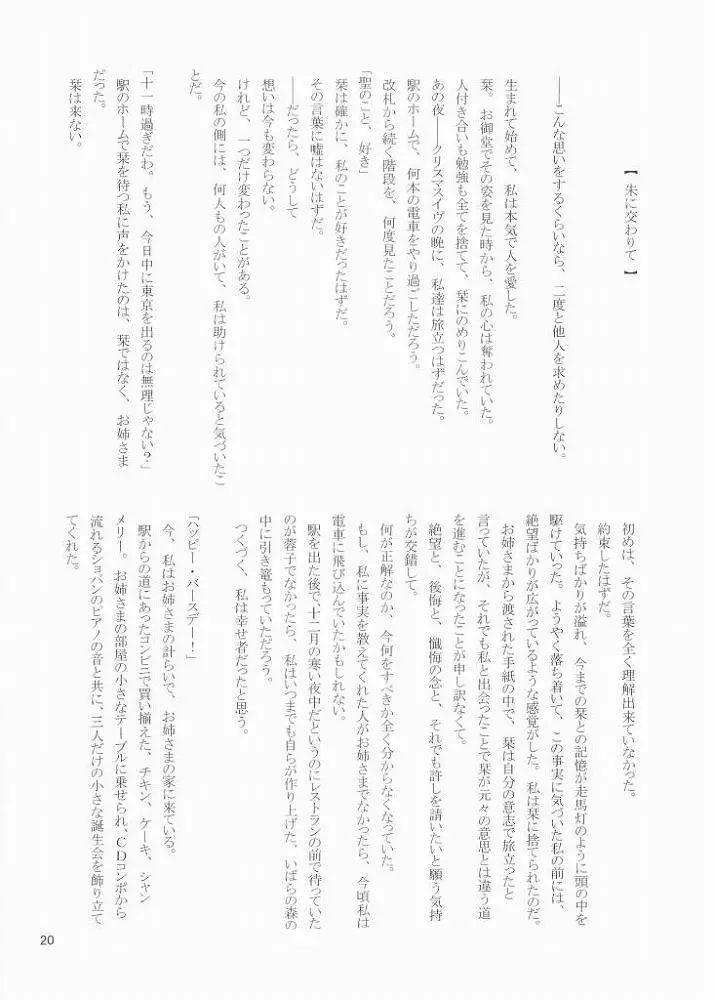 【 朱に交わりて 】
――こんな思いをするくらいなら、二度と他人を求めたりしない。
生まれて始めて、私は本気で人を愛した。
栞。お御堂でその姿を見た時から、私の心は奪われていた。
人付き合いも勉強も全てを捨てて、栞にのめりこんでいた。
あの夜――クリスマスイヴの晩に、私達は旅立つはずだった。
駅のホームで、何本の電車をやり過ごしただろう。
改札から続く階段を、何度見たことだろう。
「聖のこと、好き」
栞は確かに、私のことが好きだったはずだ。
その言葉に嘘はないはずだ。
――だったら、どうして
想いは今も変わらない。
けれど、一つだけ変わったことがある。
今の私の側には、何人もの人がいて、私は助けられていると気づいたこ
とだ。
「十一時過ぎだわ。もう、今日中に東京を出るのは無理じゃない？」
駅のホームで栞を待つ私に声をかけたのは、栞ではなく、お姉さま
だった。
栞は来ない。
初めは、その言葉を全く理解出来ていなかった。
約束したはずだ。
気持ちばかりが溢れ、今までの栞との記憶が走馬灯のように頭の中を
駆けていった。ようやく落ち着いて、この事実に気づいた私の前には、
絶望ばかりが広がっているような感覚がした。私は栞に捨てられたのだ。
お姉さまから渡された手紙の中で、栞は自分の意志で旅立ったと
言っていたが、それでも私と出会ったことで栞が元々の意思とは違う道
を進むことになったことが申し訳なくて。
絶望と、後悔と、懺悔の念と、それでも許しを請いたいと願う気持
ちが交錯して。
何が正解なのか、今何をすべきか全く分からなくなっていた。
もし、私に事実を教えてくれた人がお姉さまでなかったら、今頃私は
電車に飛び込んでいたかもしれない。
駅を出た後で、十二月の寒い夜中だというのにレストランの前で待っていた
のが蓉子でなかったら、私はいつまでも自らが作り上げた、いばらの森の
中に引き篭もっていただろう。
つくづく、私は幸せ者だったと思う。
「ハッピー・バースデー！」
今、私はお姉さまの計らいで、お姉さまの家に来ている。
駅からの道にあったコンビニで買い揃えた、チキン、ケーキ、シャン
メリー。お姉さまの部屋の小さなテーブルに乗せられ、ＣＤコンポから
流れるショパンのピアノの音と共に、三人だけの小さな誕生会を飾り立て
てくれた。
20